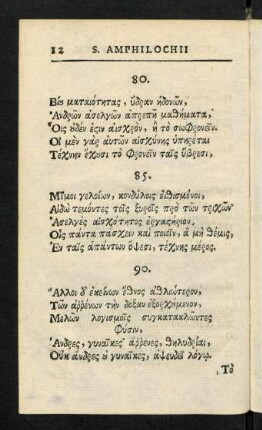 12 S. AMPHILOCHII
80.
Εἰς ματαιότητας, ὕδραν ἡδονῶν,
Ἀνδρῶν ἀσελγῶν ἀπρεπῆ μαθήματα,
Οἷς ἐδέν ἐςιν αἰσχρὸν, ἢ τὸ σωφρονεῖν.
Οἱ μὲν γὰρ αὐτῶν αἰσχύνης ὑπηρέται
Τέχνην ἔχεσι τὸ φρονεῖν ταῖς ὕβρεσι,
85.
Μῖμοι γελοίων, κονδύλοις εἰθισμένοι,
Αἰδῶ τεμόντες τοῖς ξυροῖς πρὸ τῶν τριχῶν
Ἀσελγὲς αἰσχότητος ἐργαςήριον.
Οἷς πάντα πάσχειν καὶ ποιεῖν, ἃ μὴ θέμις,
Ἐν ταῖς ἁπάντων ὄψεσι, τέχνης μέρος.
90.
Ἄλλοι δ' ἐκείνων ἔθνος ἀθλιώτερον,
Τῶν ἀῤῥένων τὴν δόξαν ἐξορχέμενον,
Μελῶν λογισμοῖς συγκατακλῶντες
φύσιν,
Ἄνδρες, γυναῖκες ἄῤῥενες, θηλυδρίαι,
Οὐκ ἄνδρες ἐ γυναῖκες, ἀψευδεῖ λόγῳ.
Τὸ